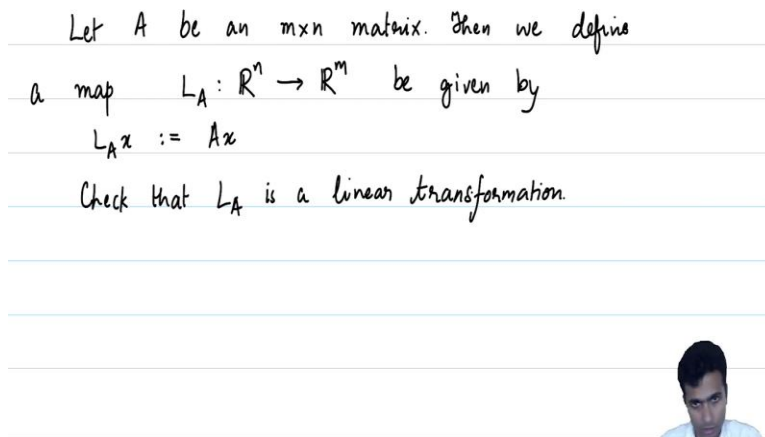 Let A be an m×n matrix. Then we define
a map L_A : ℝⁿ → ℝᵐ be given by
L_A x := Ax
Check that L_A is a linear transformation.